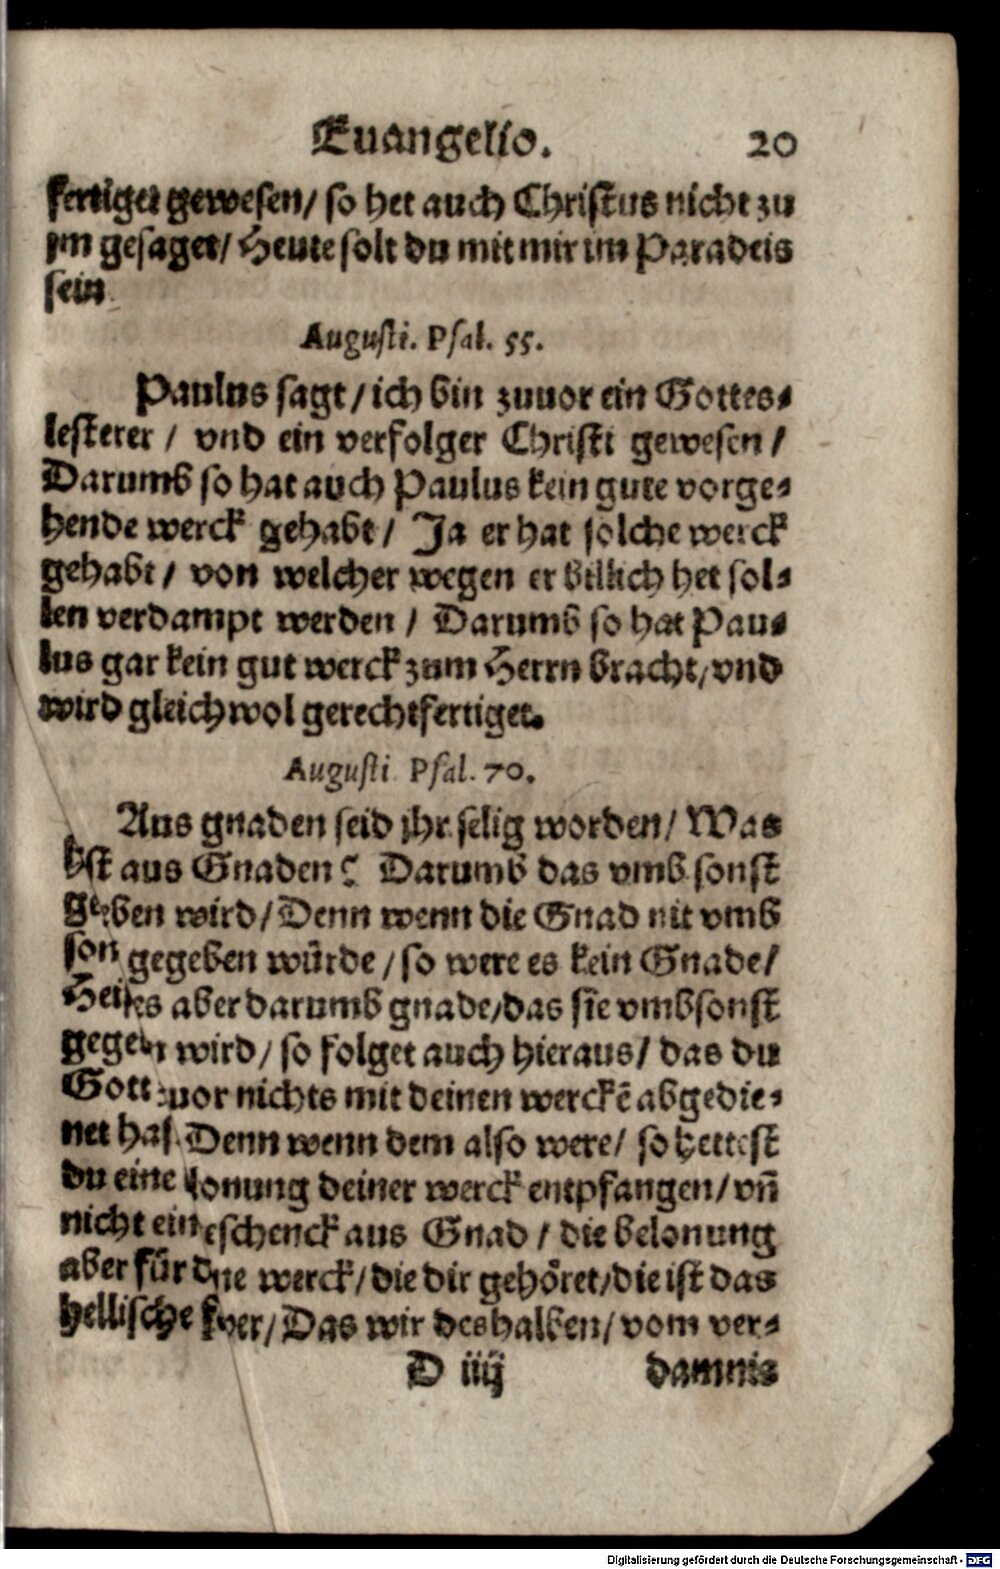 Euangelio. 20
fertiget gewesen/ so het auch Christus nicht zu
jm gesaget/ Heute solt du mit mir im Paradeis
sein.
Augusti. Psal. 55.
Paulus sagt/ ich bin zuuor ein Gottes-
lesterer / vnd ein verfolger Christi gewesen /
Darumb so hat auch Paulus kein gute vorge-
hende werck gehabt/ Ja er hat solche werck
gehabt/ von welcher wegen er billich het sol-
len verdampt werden / Darumb so hat Pau-
lus gar kein gut werck zum Herrn bracht/ vnd
wird gleichwol gerechtfertiget.
Augusti. Psal. 70.
Aus gnaden seid jhr selig worden/ Was
ist aus Gnaden? Darumb das vmb sonst
geben wird/ Denn wenn die Gnad nit vmb
son gegeben würde/ so were es kein Gnade/
aber darumb gnade/ das sie vmbsonst
wird/ so folget auch hieraus/ das du
Gott zuor nichts mit deinen werckē abgedie-
net has Denn wenn dem also were/ so hettest
du eine lonung deiner werck entpfangen/ vñ
nicht ein eschenck aus Gnad / die belonung
aber für dne werck/ die dir gehöret/ die ist das
hellische fwer/ Das wir deshalben/ vom ver-
D iiij damnis
Digitalisierung gefördert durch die Deutsche Forschungsgemeinschaft - DFG